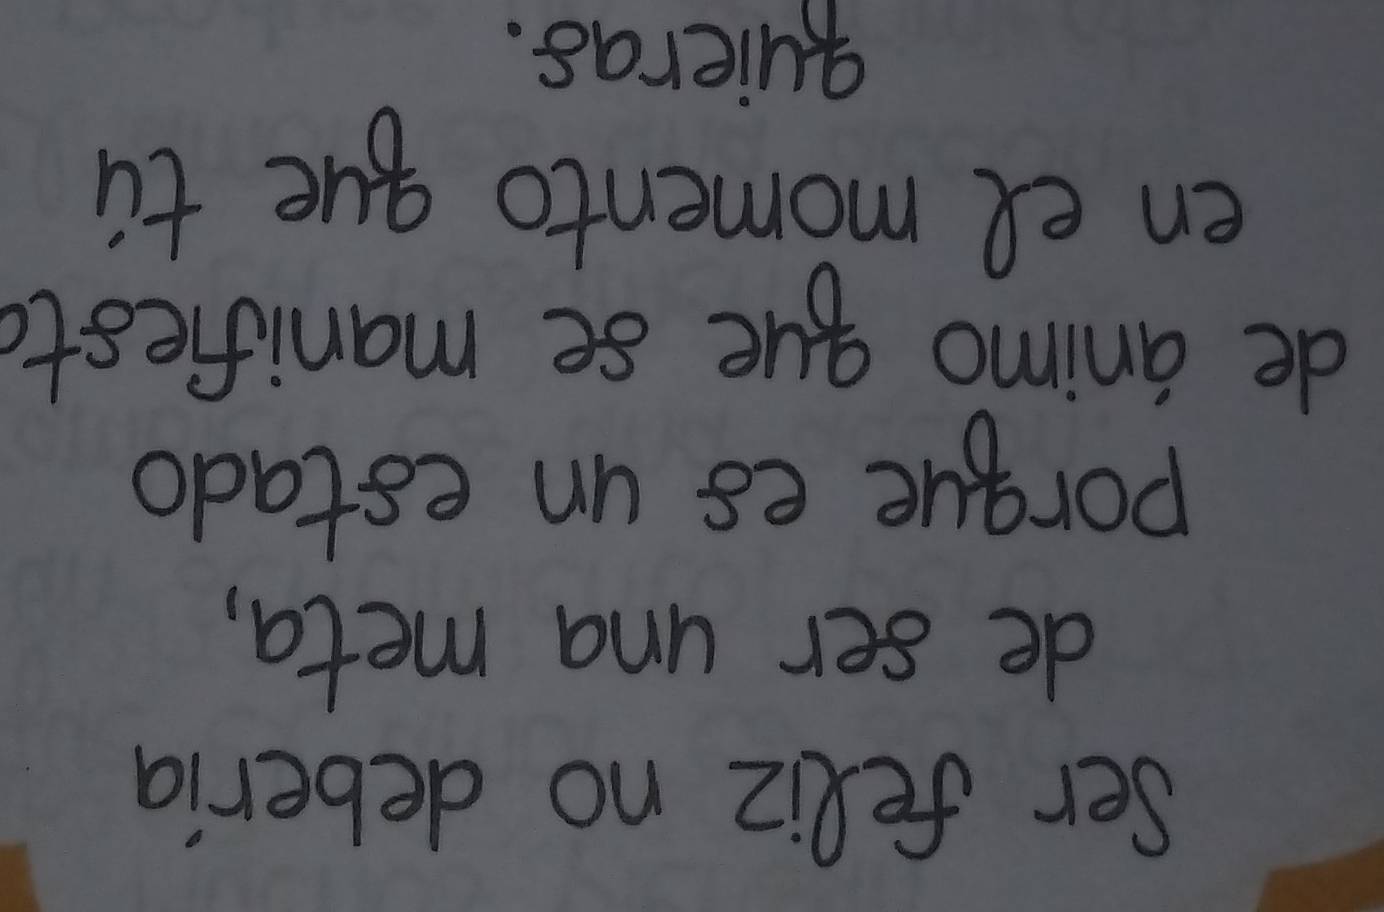 Ser feliz no debería
de ser una meta,
porque es un estado
de ánimo que se manifiesta
en el momento que tú
quieras.